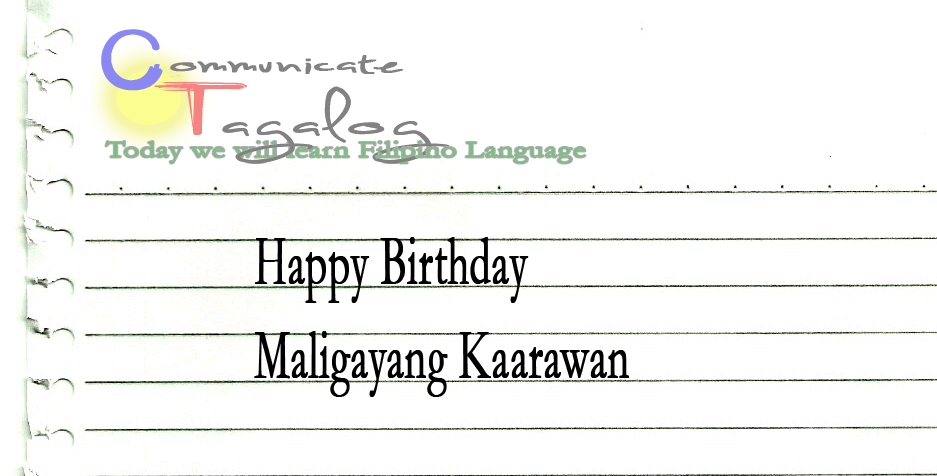 Communicate
Tagalog
Today we will learn Filipino Language
Happy Birthday
Maligayang Kaarawan